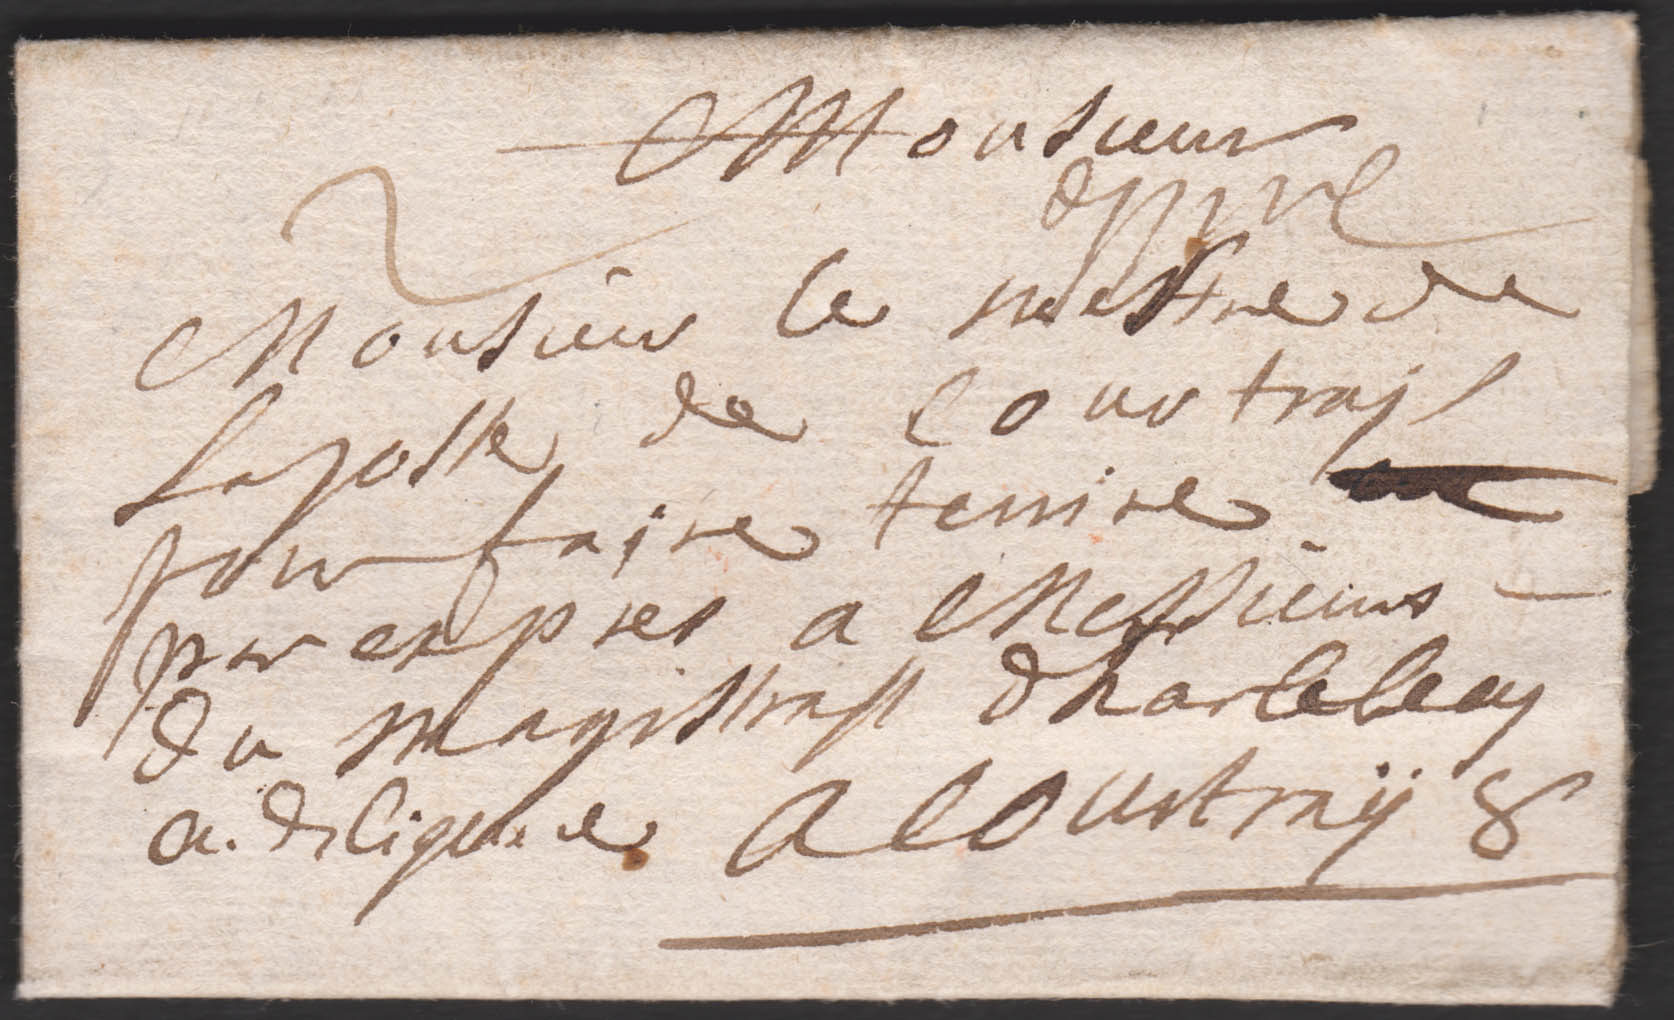 Monsieur
2
dypre
Monsieur le mestre de
la poste de Courtraij
pour faire tenire
par expres a Messieurs
du Magistraft dharlebecq
a. diligence a Courtraij